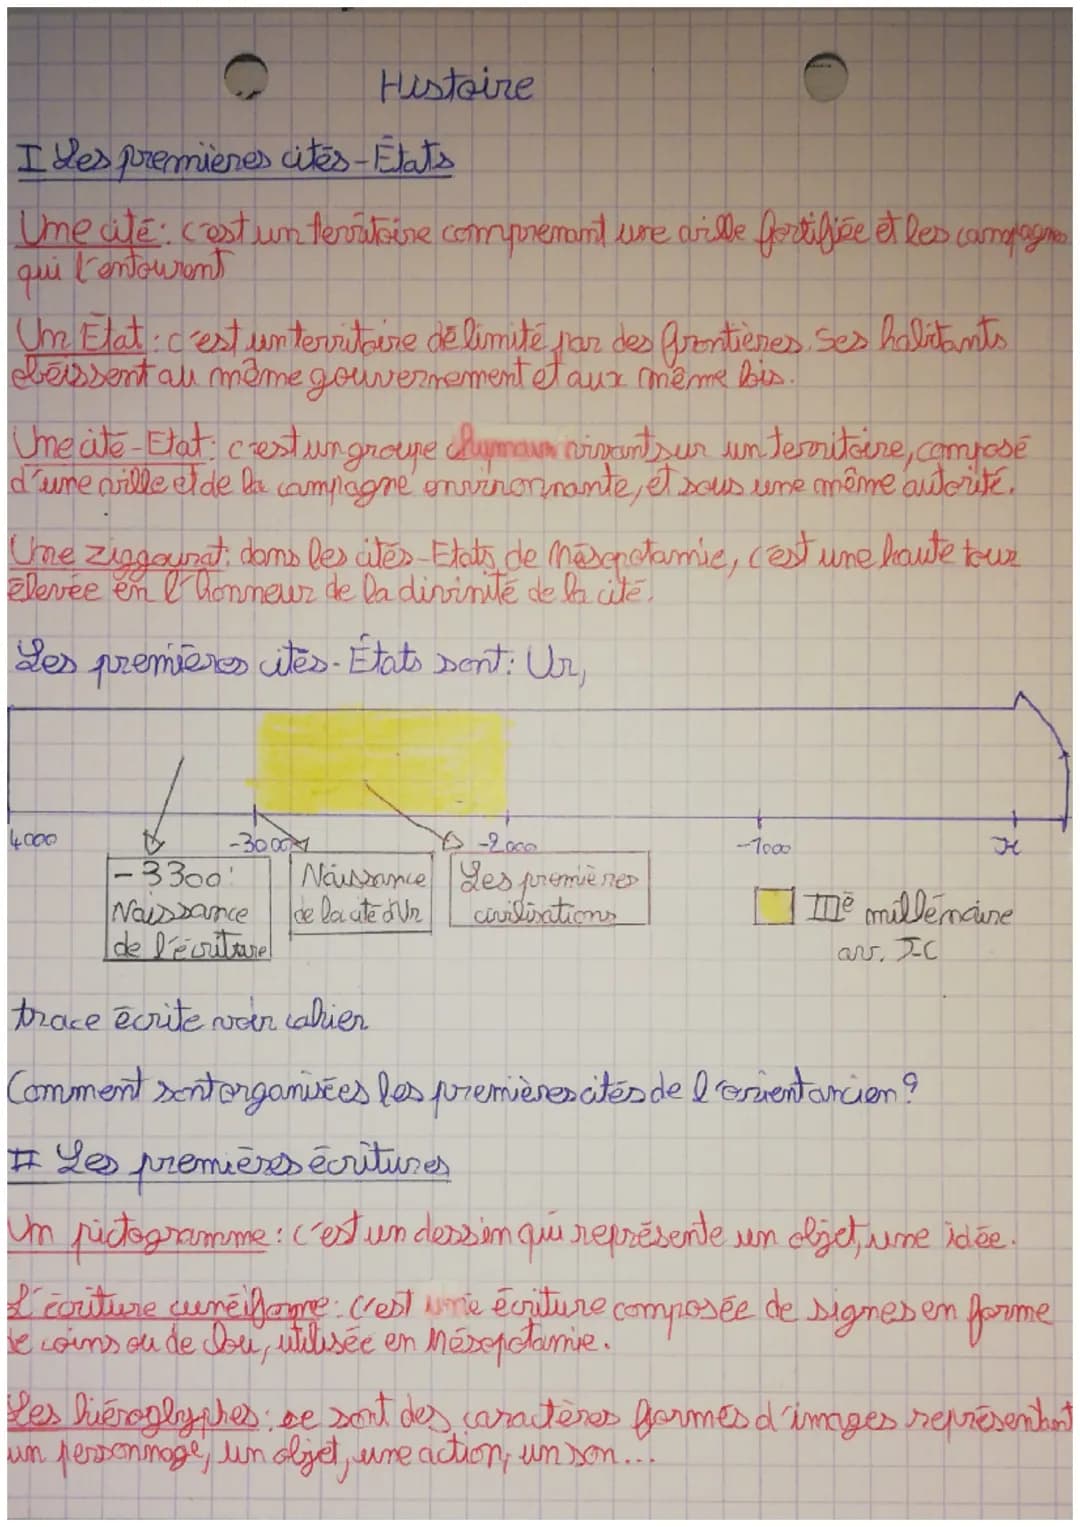 Histoire
I Les premières cités-États
Une cité: c'est un territoire comprenant une ville fortifiée et les campagnes
qui l'entourent
Un État: c'est un territoire délimité par des frontières. Ses habitants
obéissent au même gouvernement et aux même lois.
Une cité-Etat: c'est un groupe humain vivant sur un territoire, composé
d'une ville et de la campagne environnante, et sous une même autorité.
Une ziggourat: dans les cités-Etats de Mésopotamie, c'est une haute tour
élevée en l'honneur de la divinité de la cité.
Les premières cités-États sont: Ur,
4000 -3000 -2000 -1000 JC
-3300: Naissance Les premières
Naissance de la cité d'Ur civilisations
de l'écriture
IIIè millénaire
av. J-C
trace écrite voir cahier
Comment sont organisées les premières cités de l'orient ancien?
II Les premières écritures
Un pictogramme: c'est un dessin qui représente un objet, une idée.
L'écriture cunéiforme: c'est une écriture composée de signes en forme
de coins ou de clou, utilisée en Mésopotamie.
Les hiéroglyphes: ce sont des caractères formés d'images représentant
un personnage, un objet, une action, un son...